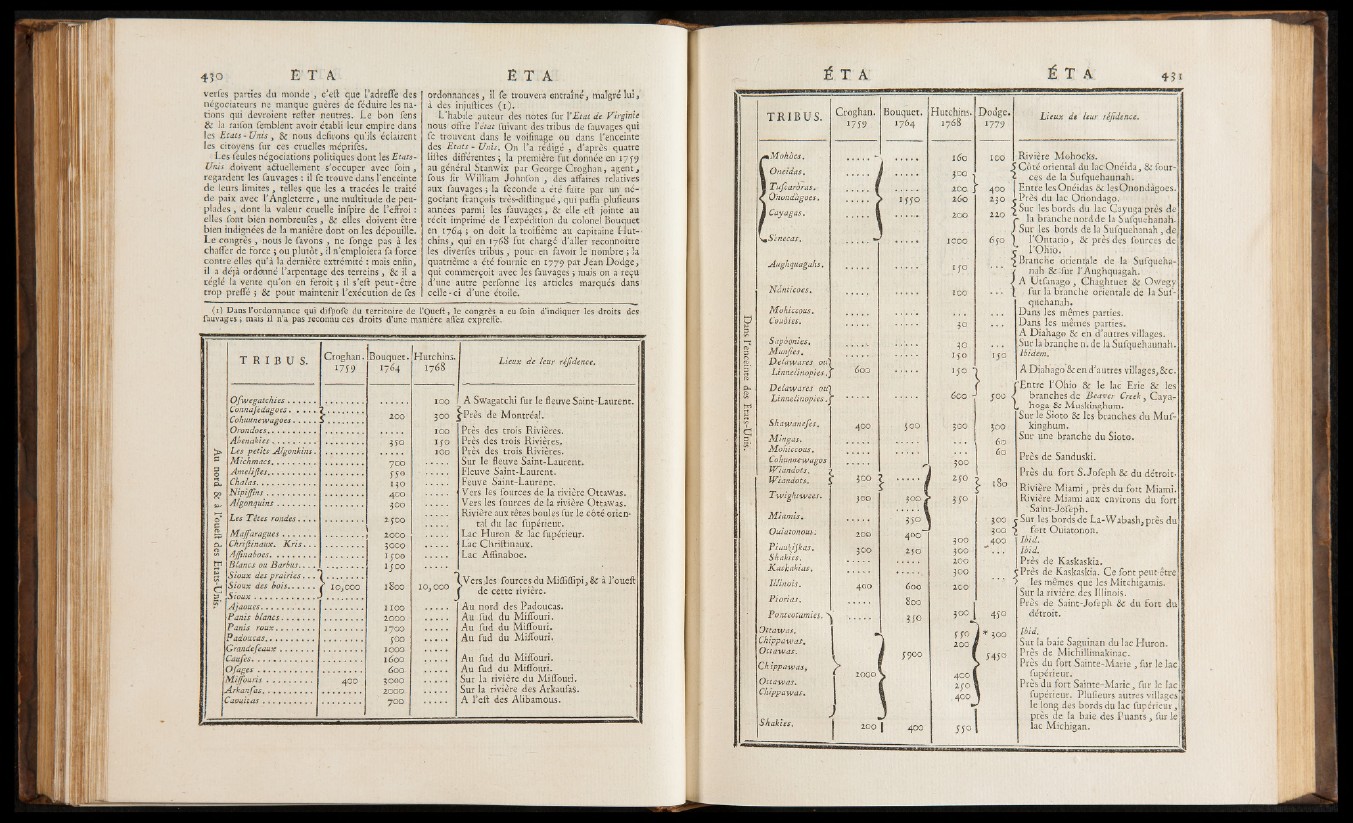 430 É T A
É T A
verſes parties du monde , c'eſt que l'adreſſe des
négociateurs ne manque guères de ſéduire les na-
tions qui devroient reſter neutres. Le bon ſens
& la raiſon ſemblent avoir établi leur empire dans
les Etats-Unis , & nous deſirons qu'ils éclairent
les citoyens ſur ces cruelles mépriſes.
Les ſeules négociations politiques dont les Etats-
Unis doivent actuellement s'occuper avec ſoin ,
regardent les ſauvages : il ſe trouve dans l'enceinte
de leurs limites , telles que les a tracées le traité
de paix avec l'Angleterre , une multitude de peu-
plades , dont la valeur cruelle inſpire de l'effroi :
elles ſont bien nombreuſes , & elles doivent être
bien indignées de la manière dont on les dépouille.
Le congrès , nous le ſavons , ne ſonge pas à les
chaſſer de force ; ou plutôt , il n'emploiera ſa force
contre elles qu'à la dernière extrémité : mais enfin,
il a déjà ordonné l'arpentage des terreins , & il a
réglé la vente qu'on en feroit ; il s'eſt peut-être
trop preſſé ; & pour maintenir l'exécution de ſes
ordonnances , il ſe trouvera entraîné, malgré lui,
à des injuſtices (1).
L'habile auteur des notes ſur l'Etat de Virginie
nous offre l'état ſuivant des tribus de ſauvages qui
ſe trouvent dans le voiſinage ou dans l'enceinte
des Etats-Unis. On l'a rédigé , d'après quatre
liſtes différentes ; la première fut donnée en 1759
au général Stanwix par George Croghan, agent,
ſous ſir William Johnſon , des affaires relatives
aux ſauvages ; la ſeconde a été faite par un né-
gociant françois très-diſtingué , qui paſſa pluſieurs
années parmi les ſauvages, & elle eſt jointe au
récit imprimé de l'expédition du colonel Bouquet
en 1764 ; on doit la troiſième au capitaine Hut-
chins, qui en 1768 fut chargé d'aller reconnoître
les diverſes tribus , pour en ſavoir le nombre ; la
quatrième a été fournie en 1779 par Jean Dodge,
qui commerçoit avec les ſauvages ; mais on a reçu
d'une autre perſonne les articles marqués dans
celle-ci d'une étoile.
(1) Dans l'ordonnance qui diſpoſe du territoire de l'Oueſt , le congrès a eu ſoin d'indiquer les droits des
ſauvages ; mais il n'a pas reconnu ces droits d'une manière aſſez expreſſe.
TRIBUS. Croghan. 1759 Bouquet. 1764 Hutchins. 1768 Lieux de leur réſidence.
Au nord & à l'oueſt des Etats-Unis.
Oſwegatchies ...... ..... 100 A Swagatchi ſur le fleuve Saint-Laurent.
Connaſedagoes. .....
Cohunnewagoes ..... 200 300 Près de Montréal.
Orondoes. ..... 100 Près des trois Rivières.
Abenakies ..... 350 150 Près des trois Rivières.
Les petits Algonkins. ..... 100 Près des trois Rivières.
Michmacs. ..... 700 ..... Sur le fleuve Saint-Laurent.
Ameliſtes. ..... 550 ..... Fleuve Saint-Laurent.
Chalas. ..... 130 ..... Feuve Saint-Laurent.
Nipiſſins ..... 400 ..... Vers les ſources de la rivière Ottawas.
Algonquins ..... 300 ..... Vers les ſources de la rivière Ottawas.
Les Têtes rondes. ..... 2500 ..... Rivière aux têtes boules ſur le côté orien-
tal du lac ſupérieur.
Maſſaragues ..... 2000 ..... Lac Huron & lac ſupérieur.
Chriſtinaux. Kris. ..... 3000 ..... Lac Chriſtinaux.
Aſſinaboes. ..... 1500 ..... Lac Aſſinaboe.
Blancs ou Barbus. ..... 1500
Sioux des prairies. ...
Sioux des bois. ..... 10,000 1800 10,000 Vers les ſources du Miſſiſſipi, & à l'oueſt
Sioux ..... de cette rivière.
Ajaoues. ..... 1100 ..... Au nord des Padoucas.
Panis blancs. ..... 2000 ..... Au ſud du Miſſouri.
Panis roux. ..... 1700 ..... Au ſud du Miſſouri.
Padoucas. ..... 500 ..... Au ſud du Miſſouri.
Grandeſeaux ..... 1000
Canſes. ..... 1600 ..... Au ſud du Miſſouri.
Oſages ..... 600 ..... Au ſud du Miſſouri.
Miſſouris ..... 400 3000 ..... Sur la rivière du Miſſouri.
Arkanſas. ..... 2000 ..... Sur la rivière des Arkanſas.
Caouitas ..... 700 ..... A l'eſt des Alibamous.
É T A
É T A 431
TRIBUS. Croghan. 1759 Bouquet. 1764 Hutchins. 1768 Dodge. 1779 Lieux de leur réſidence.
Dans l'enceinte des Etats-Unis.
Mohòcs. ..... 160 100 Rivière Mohocks.
Oneidas. ..... 300 Côté oriental du lac Onéida, & ſour-
ces de la Suſquehaunah.
Tuſcaròras. ..... 200 400 Entre les Onéidas & les Onondàgoes.
Onondàgoes. ..... 1550 260 230 Près du lac Onondago.
Cayugas. ..... 200 220 Sur les bords du lac Cayuga près de
la branche nord de la Suſquehanah.
Sénecas. ..... 1000 650 Sur les bords de la Suſquehanah , de
l'Ontario, & près des ſources de
l'Ohio.
Aughquagahs. ..... 150 ... Branche orientale de la Suſqueha-
nah & ſur l'Aughquagah.
Nánticoes. ..... 100 ... A Utſanago , Chaghtnet & Owegy
ſur la branche orientale de la Suſ-
quehanah.
Mohiccous. ..... 100 ... Dans les mêmes parties.
Conòies. ..... 30 ... Dans les mêmes parties.
Sapòonies. ..... 30 ... A Diahago & en d'autres villages.
Munſies. ..... 150 150 Sur la branche n. de la Suſquehaunah.
Delawares ou
Linnelinopies. 600 150 Ibidem.
A Diahago & en d'autres villages, &c.
Delawares ou
Linnelinopies. 600 500 Entre l'Ohio & le lac Erie & les
branches de Beaver Creek , Caya-
hoga & Muskinghum.
Shawaneſes. 400 500 300 300 Sur le Sioto & les branches du Muſ-
kinghum.
Mingas. ..... 60 Sur une branche du Sioto.
Mohiccons. ..... 60
Cohunnewagos ..... 300 Près de Sanduski.
Wiandots.
Wiandots. 300 ..... 250 180 Près du fort S. Joſeph & du détroit.
Twightwees. 300 300 350 Rivière Miami , près du fort Miami.
Rivière Miami aux environs du fort
Saint-Joſeph.
Miamis. ..... 350 300 Sur les bords de La-Wabash, près du
Ouiatonous. 200 400 300 300 fort Ouiatonon.
Piankiſkas. 300 250 300 400 Ibid.
Shakies. ..... 200 ... Ibid.
Kaskakias. ..... 300 Près de Kaskaskia.
Illinois. 400 600 200 ... Près de Kaskaskia. Ce ſont peut être
les mêmes que les Mitchigamis.
Piorias. ..... 800 Sur la rivière des Illinois.
Ponteotamies. ..... 350 300 450 Près de Saint-Joſeph & du fort du
détroit.
Ottawas. 550 * 300 Ibid.
Chippawas. 200 Sur la baie Saguinan du lac Huron.
Ottawas. 5900 5450 Près de Michillimakinac.
Chippawas, 2000 400 Près du fort Sainte-Marie , ſur le lac
ſupérieur.
Ottawas. 250 Près du fort Sainte-Marie , ſur le lac
Chippawas. 400 ſupérieur. Pluſieurs autres villages
le long des bords du lac ſupérieur ,
près de la baie des Puants , ſur le
Shakies. 200 400 550 lac Michigan.